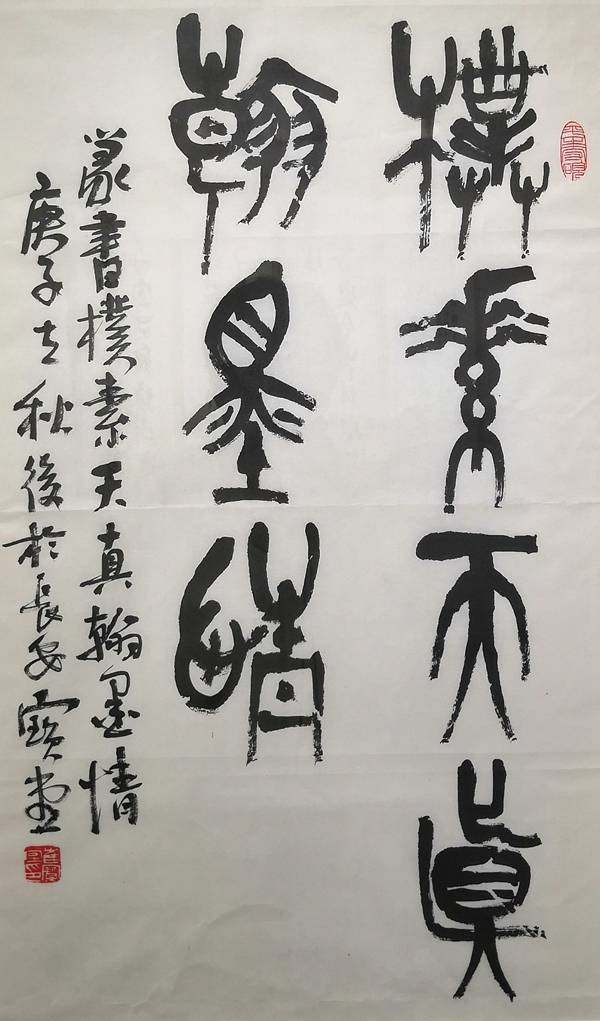 樸素天真
翰墨情
篆書樸素天真翰墨情
庚子立秋後於長安寶堂